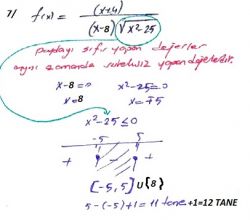 7/ f(x) = (x+4) / (x-8)√x²-25
Paydayı sıfır yapan değerler
aynı zamanda süreksiz yapan değerlerdir.
x-8=0 x²-25=0
x=8 x=∓5
x²-25≤0
-5 5
+ +
[-5,5]∪{8}
5-(-5)+1=11 tane +1=12 TANE